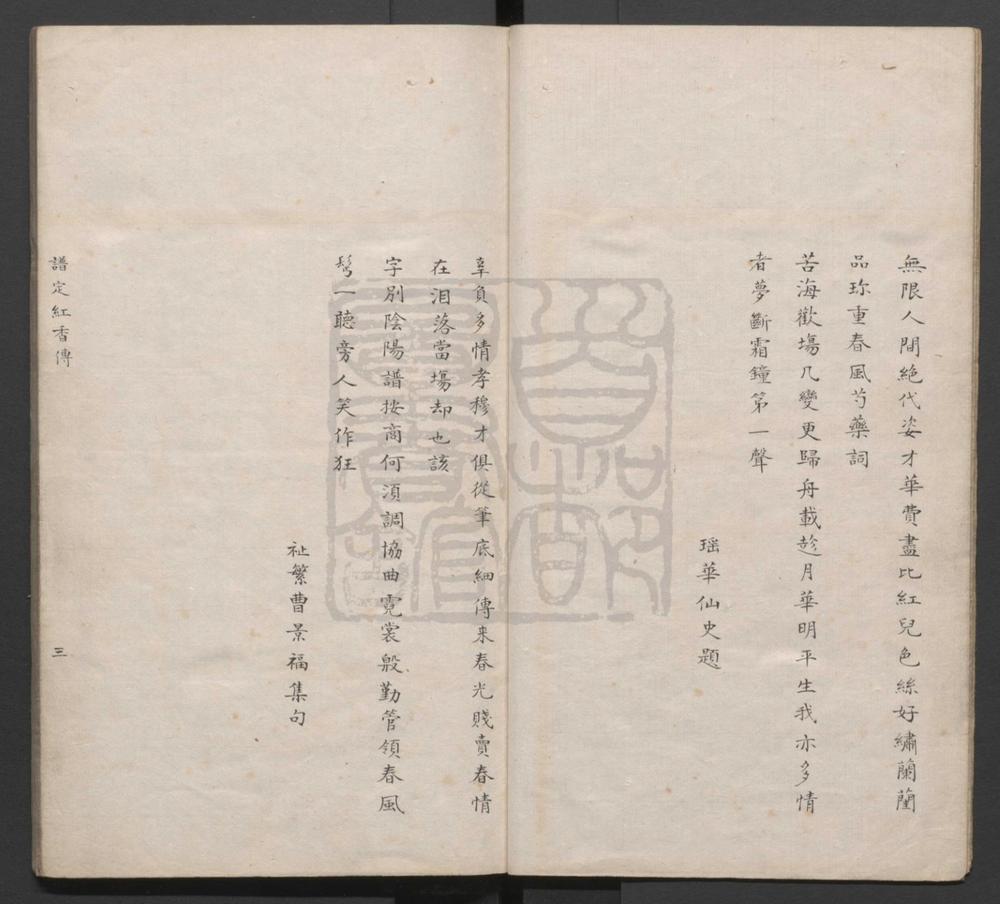 無限人間絶代姿才華費盡比紅兒色絲好繡蘭蘭
品珎重春風芍藥詞
苦海歡塲几變更歸舟載趁月華明平生我亦多情
者夢斷霜鐘第一聲
瑶華仙史題
辜負多情孝穆才俱從筆底細傳来春光賤賣春情
在泪落當塲却也該
字別陰陽譜按商何湏調協曲霓裳殷勤管領春風
髩一聽旁人笑作狂
祉繁曹景福集句
譜定紅香傳
三